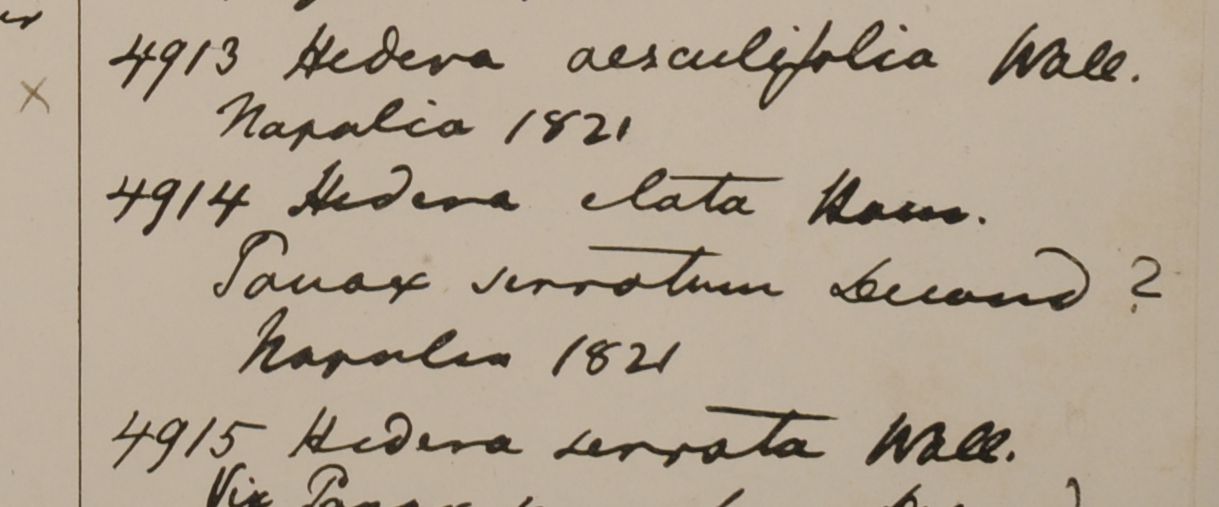 4913 Hedera aesculifolia Wall.
Napalia 1821
4914 Hedera elata Ham.
Panax serratum Decand ?
Napalia 1821
4915 Hedera serrata Wall.
Vix Panax